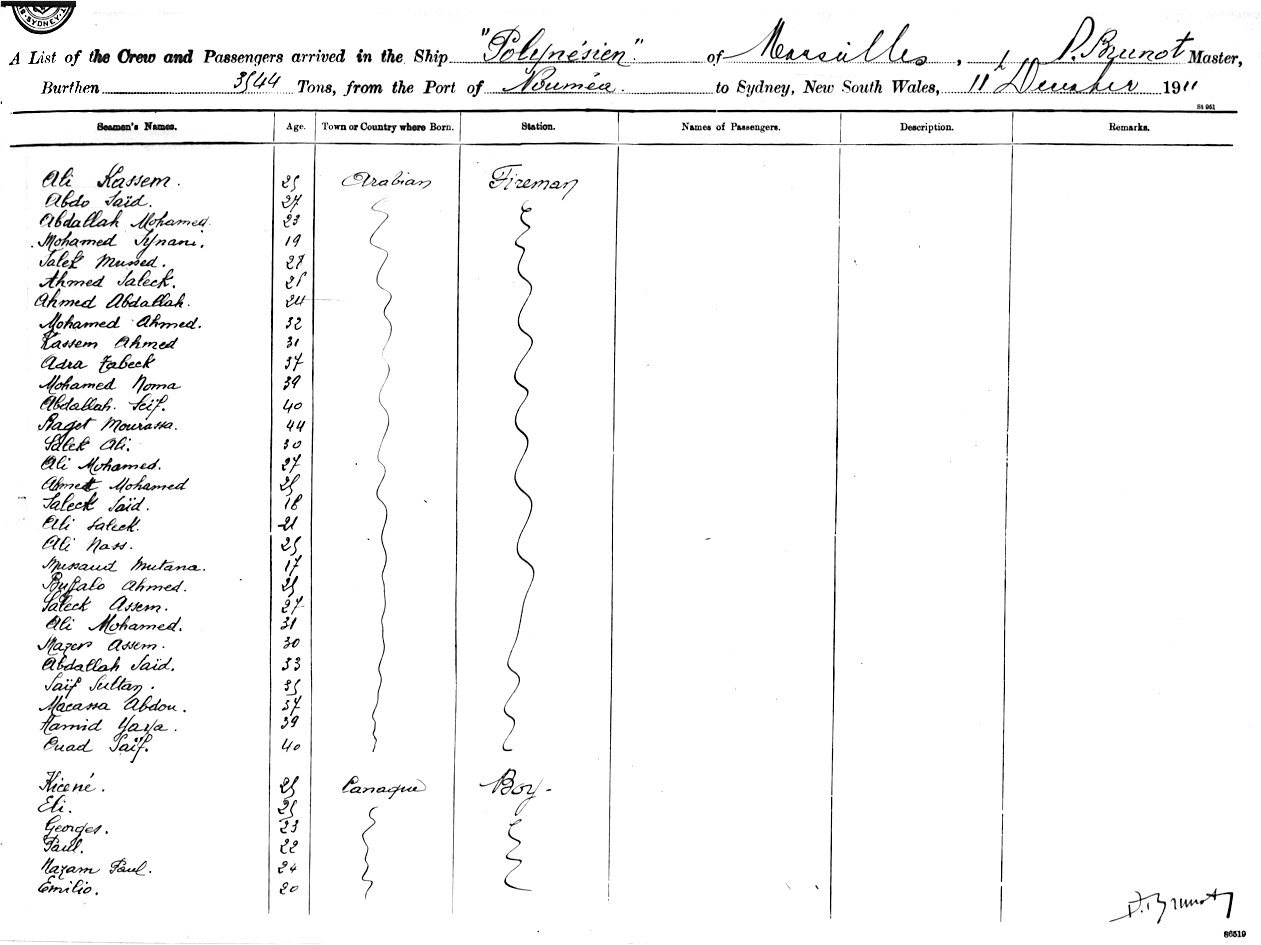 SYDNEY
A List of the Crew and Passengers arrived in the Ship "Polynésien" of Marseilles, P. Brunot Master,
Burthen 3544 Tons, from the Port of Nouméa to Sydney, New South Wales, 11 December 1911
Seamen's Names. Age. Town or Country where Born. Station. Names of Passengers. Description. Remarks.
Ali Kassem. 25 Arabian Fireman
Abdo Saïd. 27
Abdallah Mohamed. 23
Mohamed 19
Salek Mussed. 27
Ahmed Saleck. 25
Ahmed Abdallah. 24
Mohamed Ahmed. 32
Kassem Ahmed 31
Adra Zabeck 37
Mohamed Noma 39
Abdallah Seif. 40
Raget Mourassa. 44
Salek Ali. 30
Ali Mohamed. 27
Ahmet Mohamed 25
Saleck Saïd. 18
Ali Saleck. 21
Ali Nass. 25
Mussaud Mutana. 17
Buffalo Ahmed. 25
Saleck Assem. 27
Ali Mohamed. 31
Nazer Assem. 30
Abdallah Saïd. 33
Saïf Sultan. 35
Macassa Abdou. 37
Hamid Yaya. 39
Ouad Saïf. 40
Kicené. 25 Canaque Boy-
Eli. 25
Georges. 23
Paul. 22
Nazam Paul. 24
Emilio. 20
P. Brunot
86519